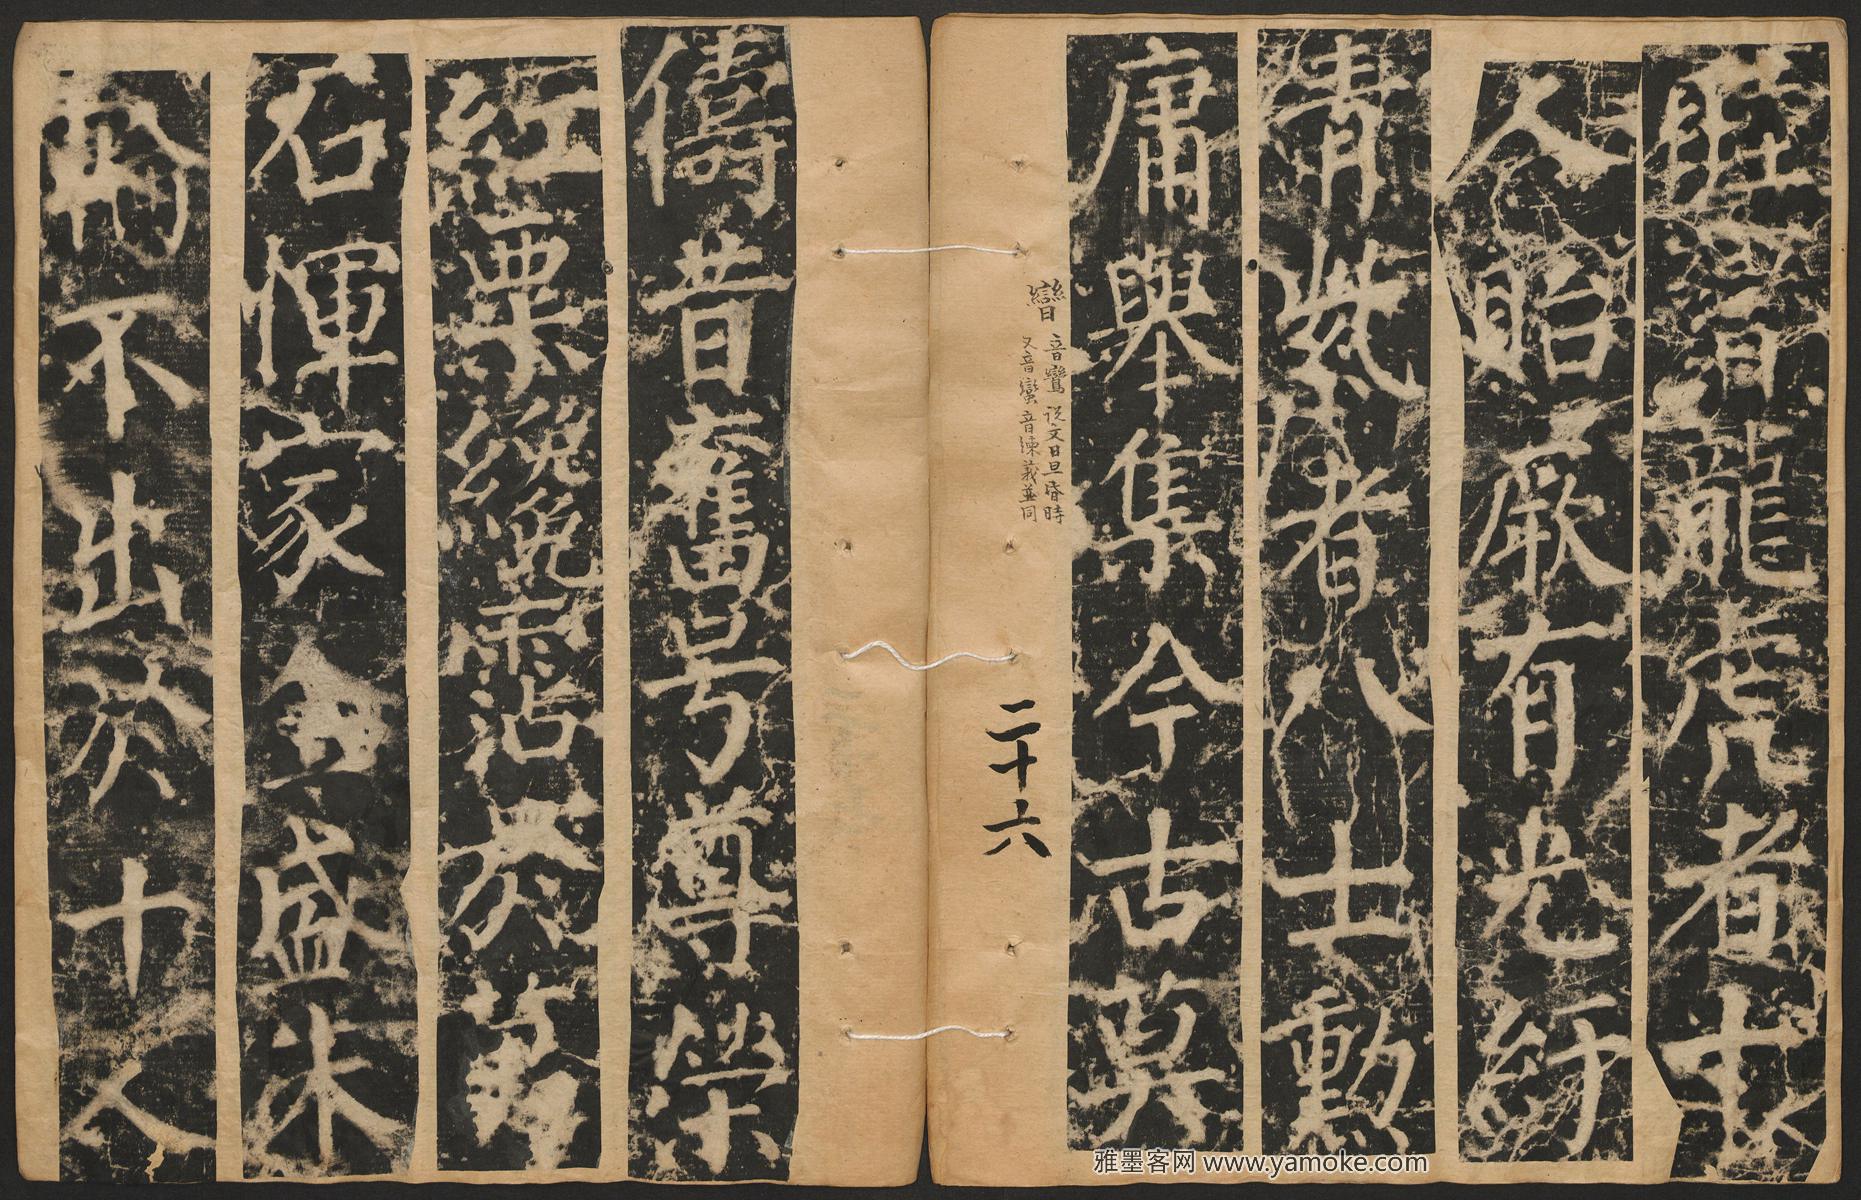 龍虎者七
人貽厥有光紆
青紫者八士勳
庸舉集今古莫
儔昔奮号尊榮
紅粟繞霑於
石惲家金盛朱
輪不出於十人
音鸞說文日旦昏時
又音蠻音湅義並同
二十六
雅墨客网 www.yamoke.com